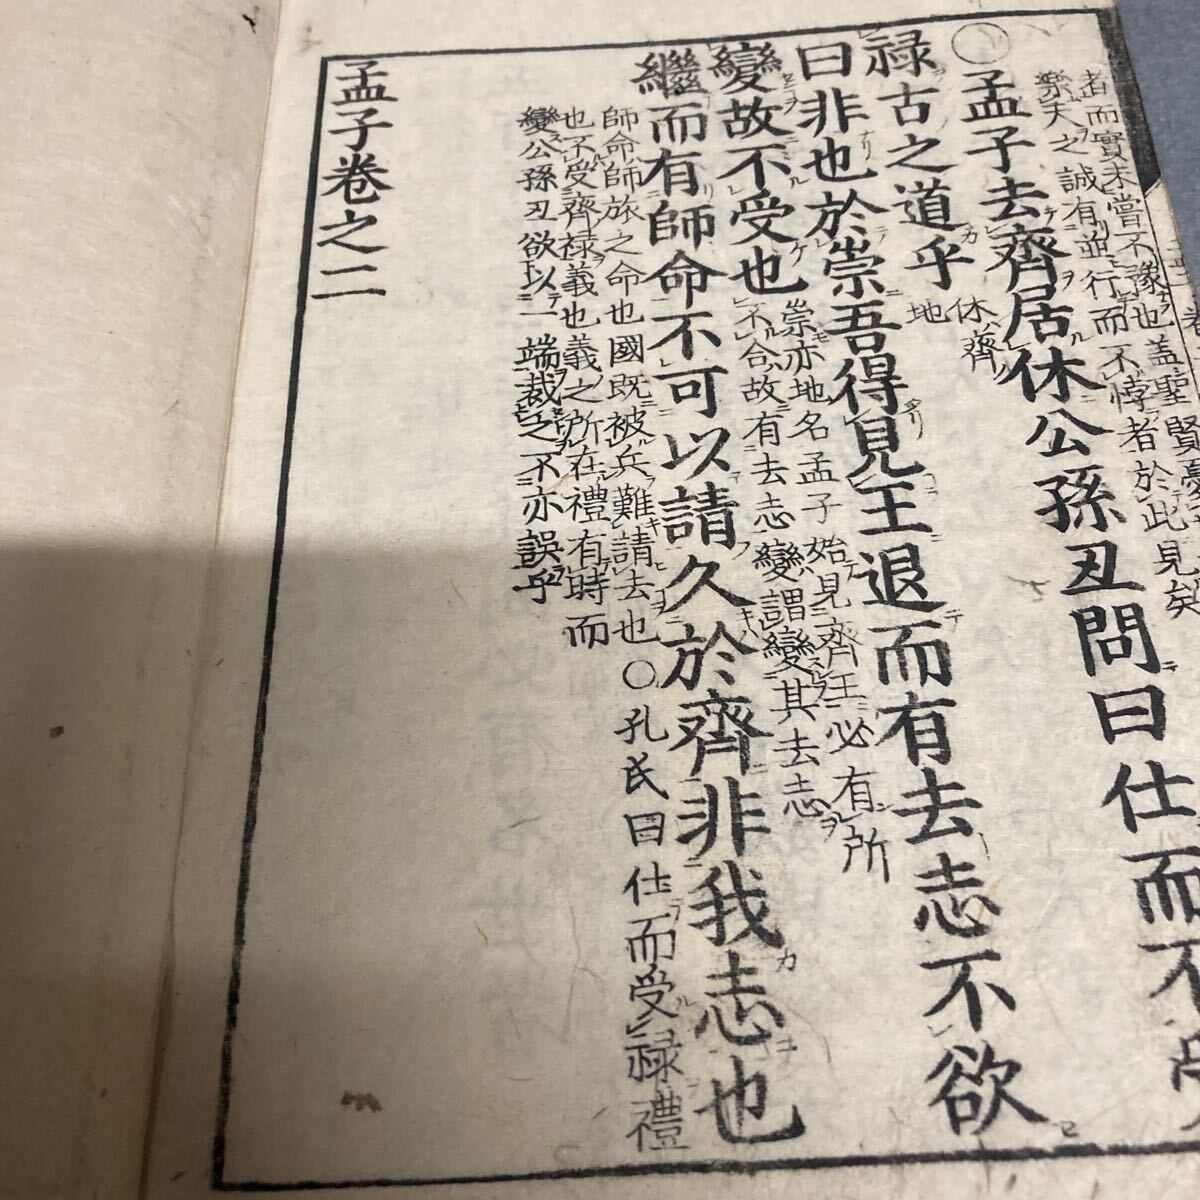 者而實未嘗不豫也蓋聖賢憂
樂天之誠有並行而不悖者於此見矣
○孟子去齊居休公孫丑問曰仕而不受
祿古之道乎
休齊
地
曰非也於崇吾得見王退而有去志不欲
變故不受也
崇亦地名孟子始見齊王必有所
不合故有去志變謂變其去志
繼而有師命不可以請久於齊非我志也
師命師旅之命也國既被兵難請去也○孔氏曰仕而受祿禮
也不受齊祿義也義之所在禮有時而
變公孫丑欲以一端裁之不亦誤乎
孟子卷之二